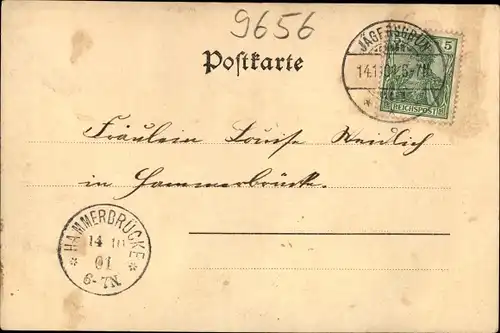 9656
Postkarte
JÄGERSGRÜN
14.1
5-7N
5
REICHSPOST
Fräulein Louise Weidlich
in Hammerbrücke.
* HAMMERBRÜCKE *
14 10
01
6-7N